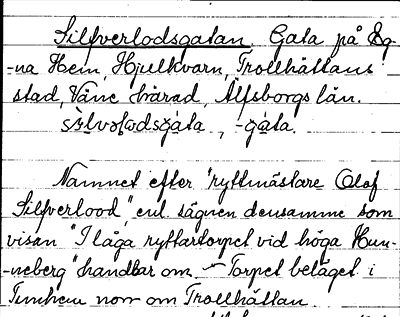 Silfverlodsgatan. Gata på Eg-
-na Hem, Hjulkvarn, Trollhättans
stad, Väne härad, Älfsborgs län.
Namnet efter "ryttmästare Olof
Silfverlood", enl. sägnen densamme som
visan "I låga ryttartorpet vid höga Hun-
-neberg" handlar om. – Torpet beläget i
Tunhem norr om Trollhättan